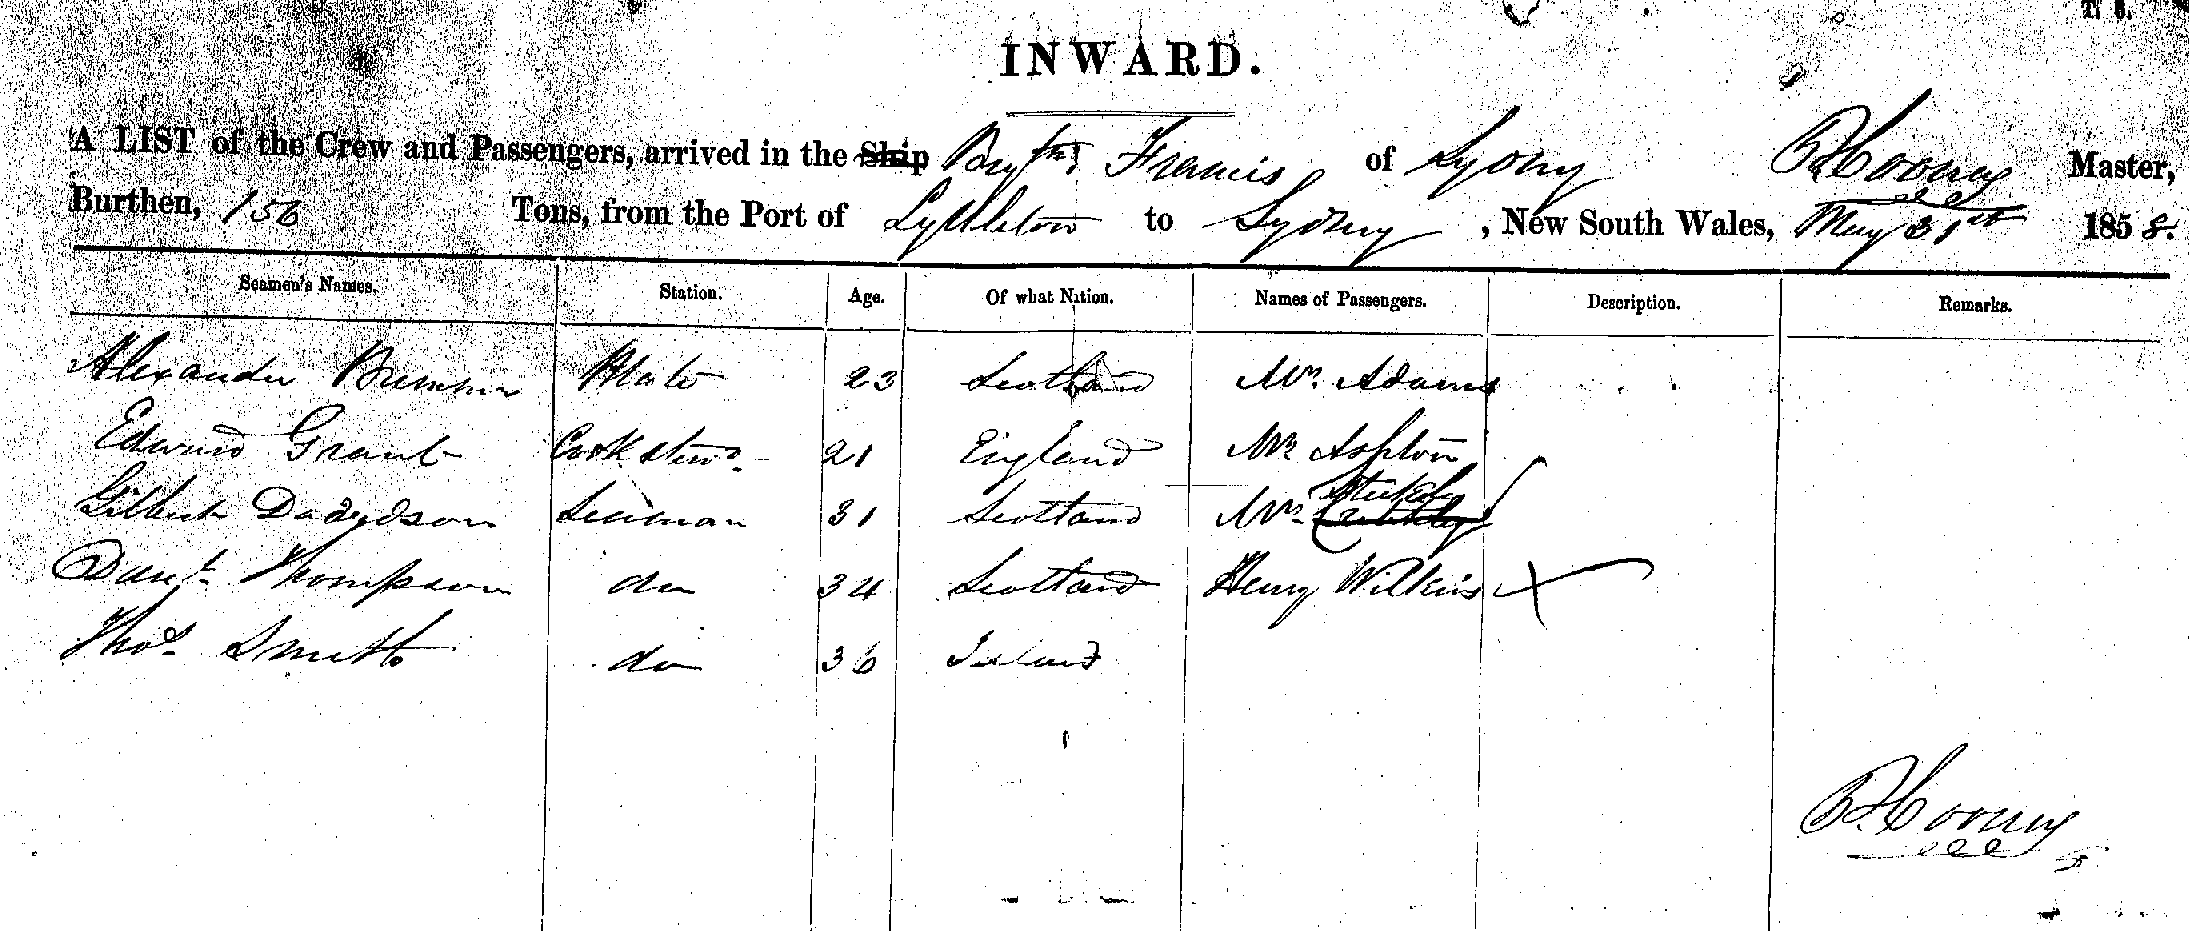 T. 8.
INWARD.
A LIST of the Crew and Passengers, arrived in the Ship Francis of Sydney Master,
Burthen, 156 Tons, from the Port of Lyttleton to Sydney, New South Wales, May 31st 1858.
Seamen's Names. Station. Age. Of what Nation. Names of Passengers. Description. Remarks.
Alexander Mate 23 Scotland Mr. Adams
Edward Grant Cook & Stewd. 21 England Mr Ashton
Gilbert Seaman 31 Scotland Mr.
Danl. Thompson do 34 Scotland Henry Wilkins
Thos. Smith do 36 Ireland